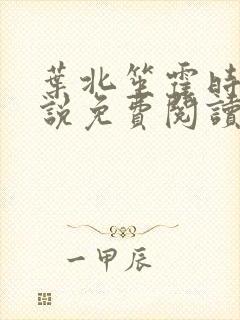 葉北笙霆時
說免費閱讀
一甲辰